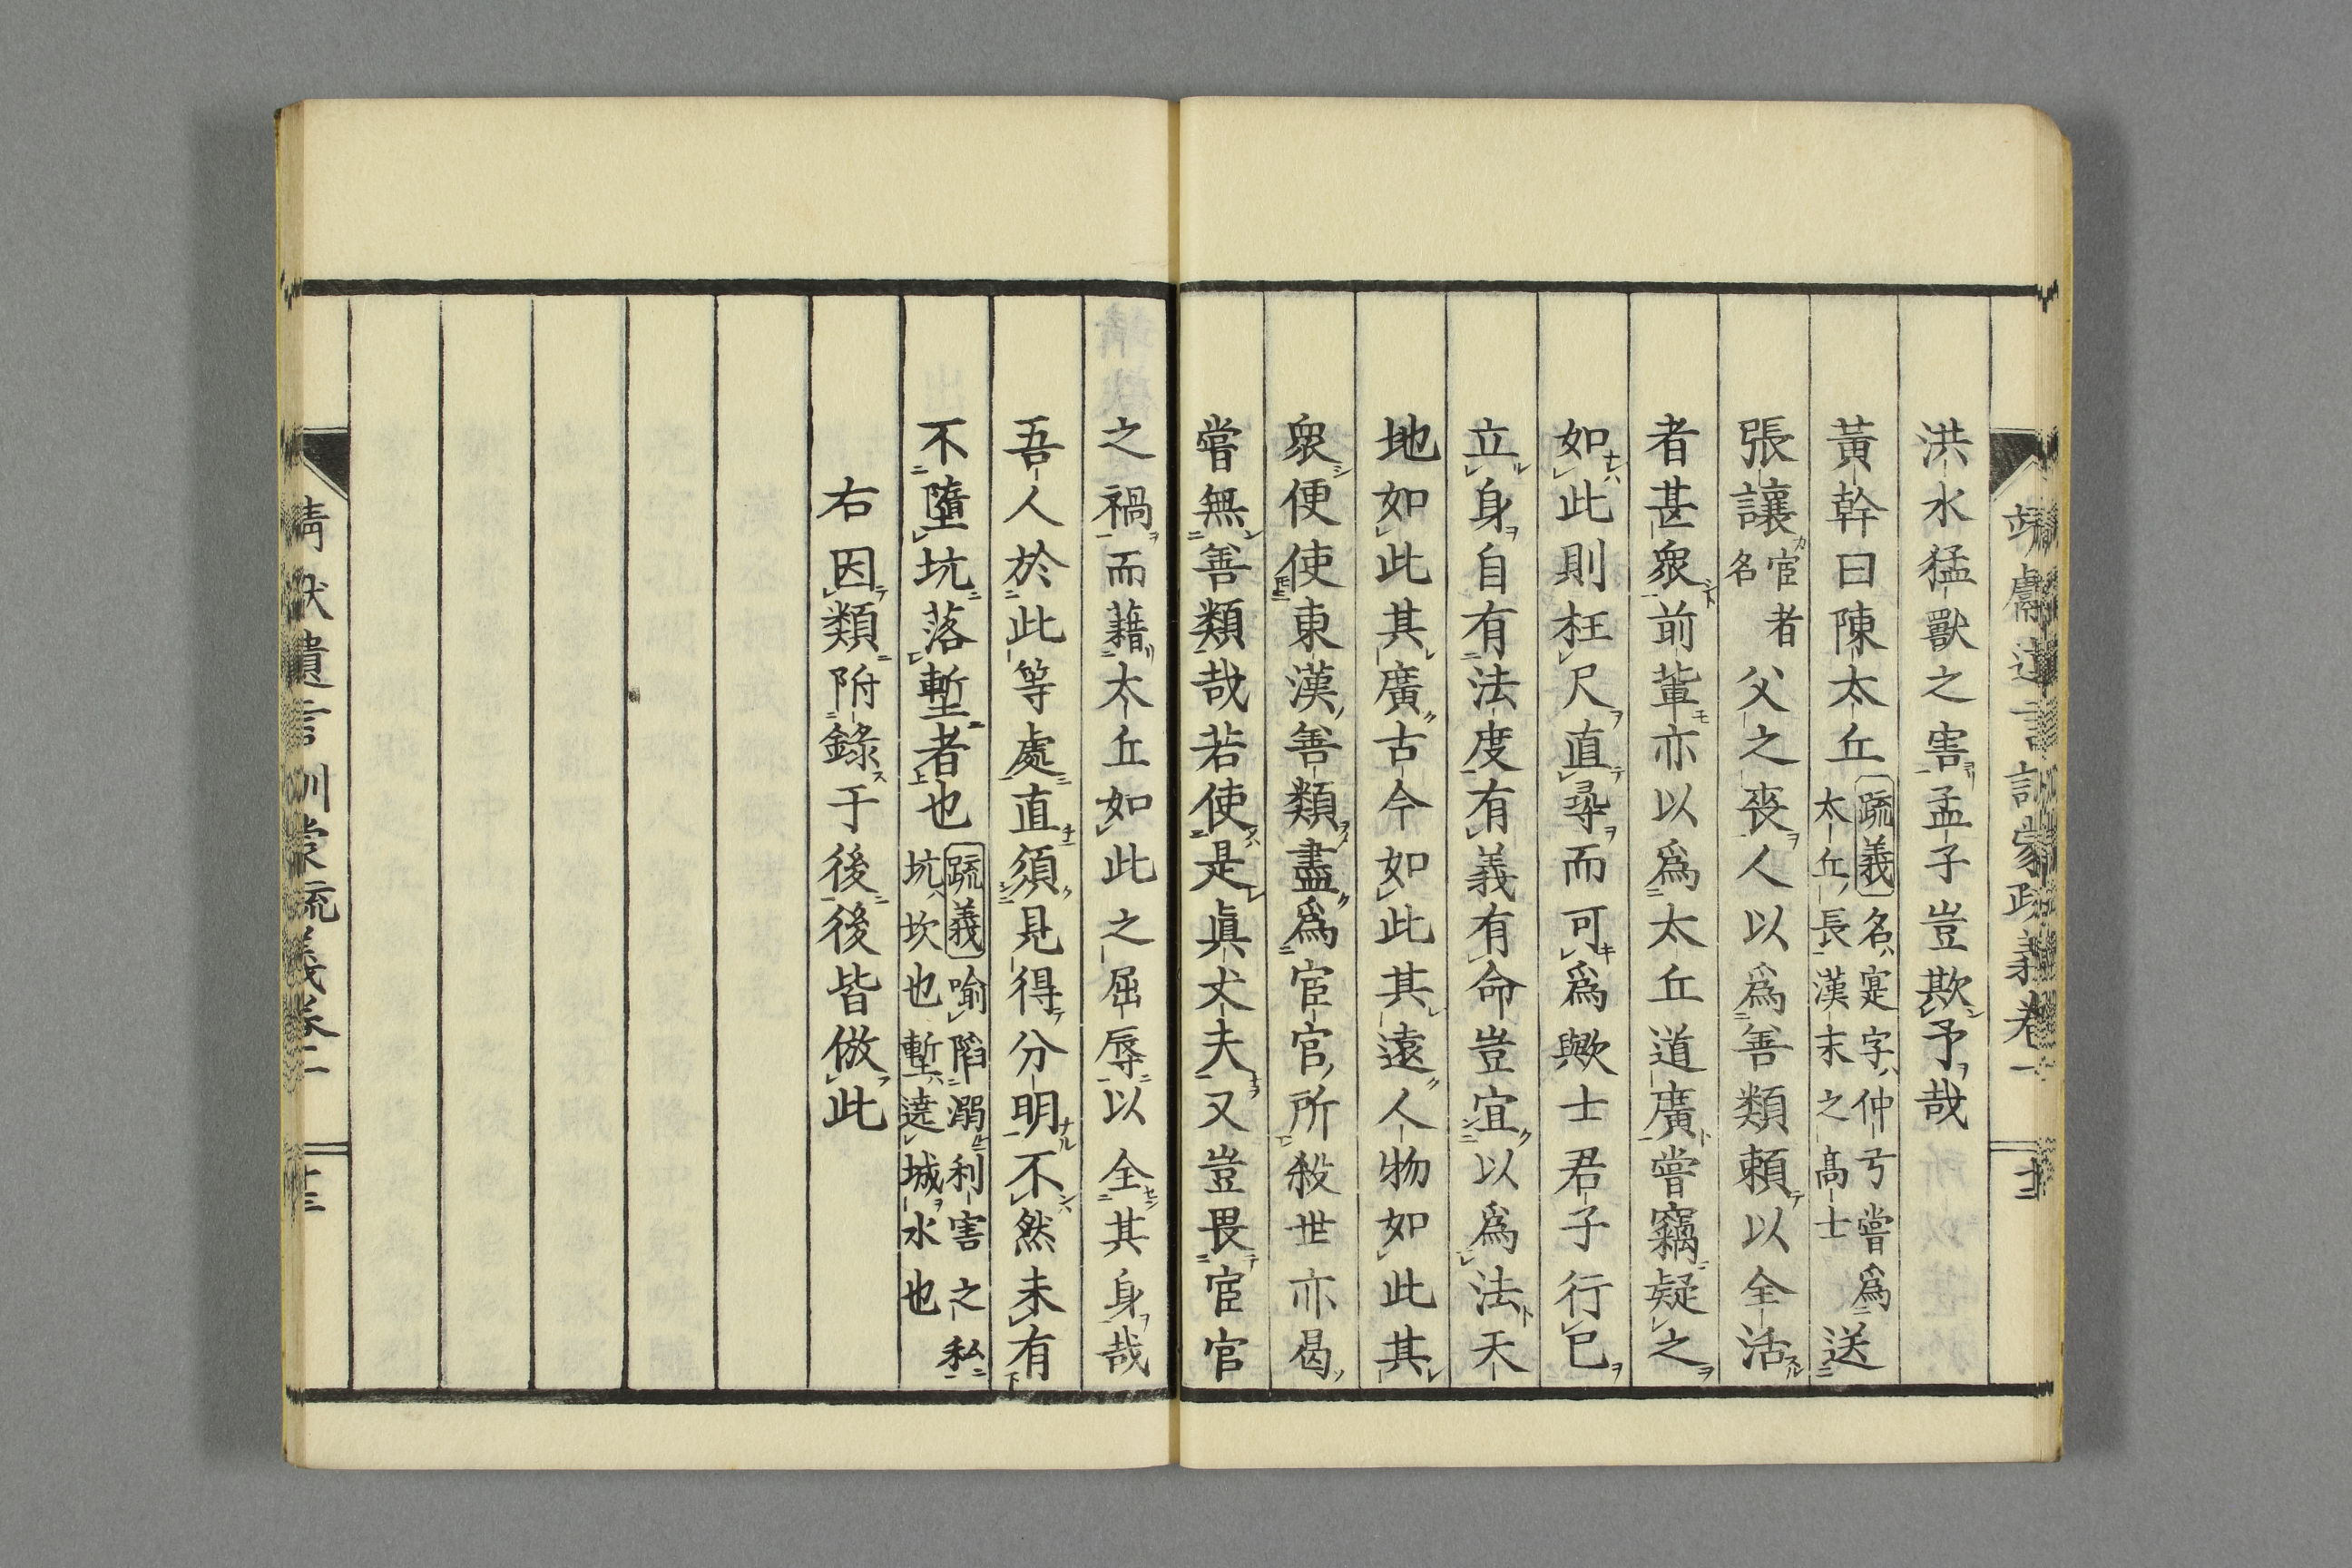 洪水猛獸之害孟子豈欺予哉
黃幹曰陳太丘疏義名寔字仲弓嘗爲太丘長漢末之高士送
張讓宦者名父之喪人以爲善類賴以全活
者甚衆前輩亦以爲太丘道廣嘗竊疑之
如此則枉尺直尋而可爲歟士君子行已
立身自有法度有義有命豈宜以爲法天
地如此其廣古今如此其遠人物如此其
衆便使東漢善類盡爲宦官所殺世亦曷
嘗無善類哉若使是眞丈夫又豈畏宦官
之禍而藉太丘如此之屈辱以全其身哉
吾人於此等處直須見得分明不然未有
不墮坑落塹者也疏義喩陷溺利害之私坑坎也塹遶城水也
右因類附錄于後後皆倣此
靖獻遺言訓蒙疏義卷二
十三